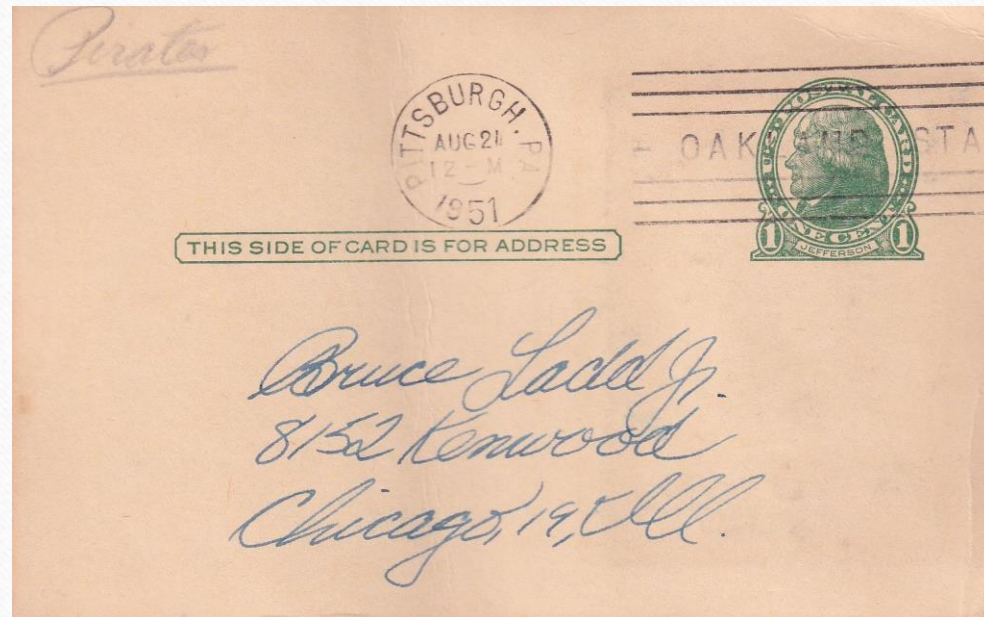 Pirates
PITTSBURGH, PA
AUG 21
12 - M
1951
OAKLAND STA
U.S. POSTAL CARD
ONE CENT
1 JEFFERSON 1
THIS SIDE OF CARD IS FOR ADDRESS
Bruce Ladd Jr.
8152 Kenwood
Chicago, 19, Ill.